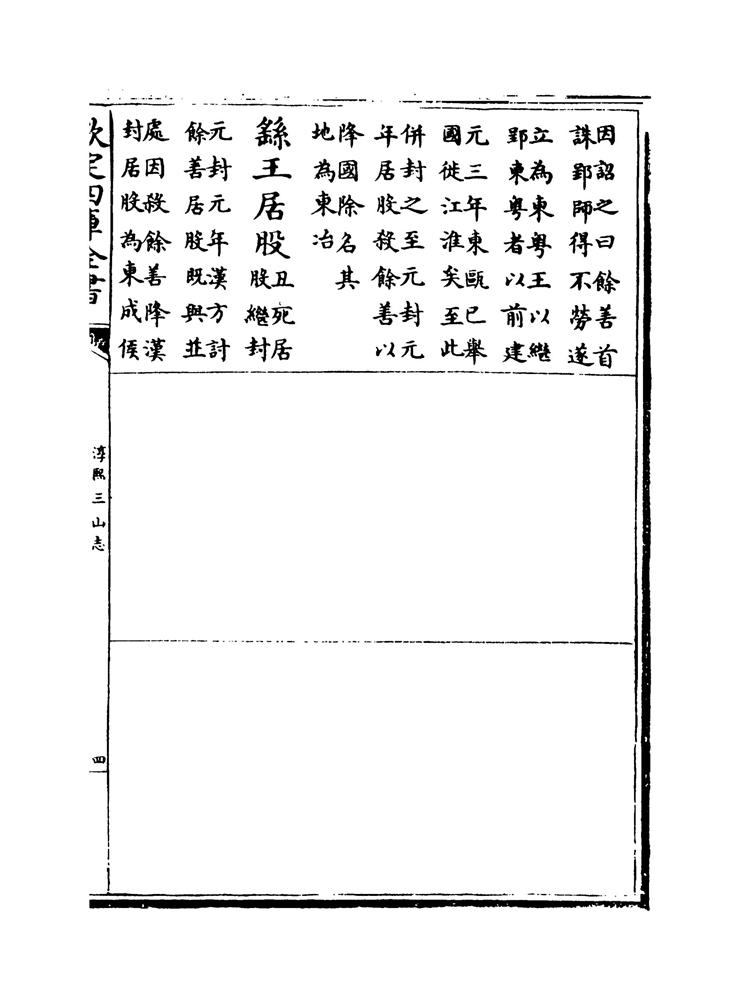 因詔之曰餘善首
誅郢師得不勞遂
立為東粤王以繼
郢東粤者以前建
元三年東甌已舉
國徙江淮矣至此
併封之至元封元
年居股殺餘善以
降國除名其
地為東冶
繇王居股
丑死居
股繼封
元封元年漢方討
餘善居股既與並
處因殺餘善降漢
封居股為東成侯
欽定四庫全書
淳熙三山志
四